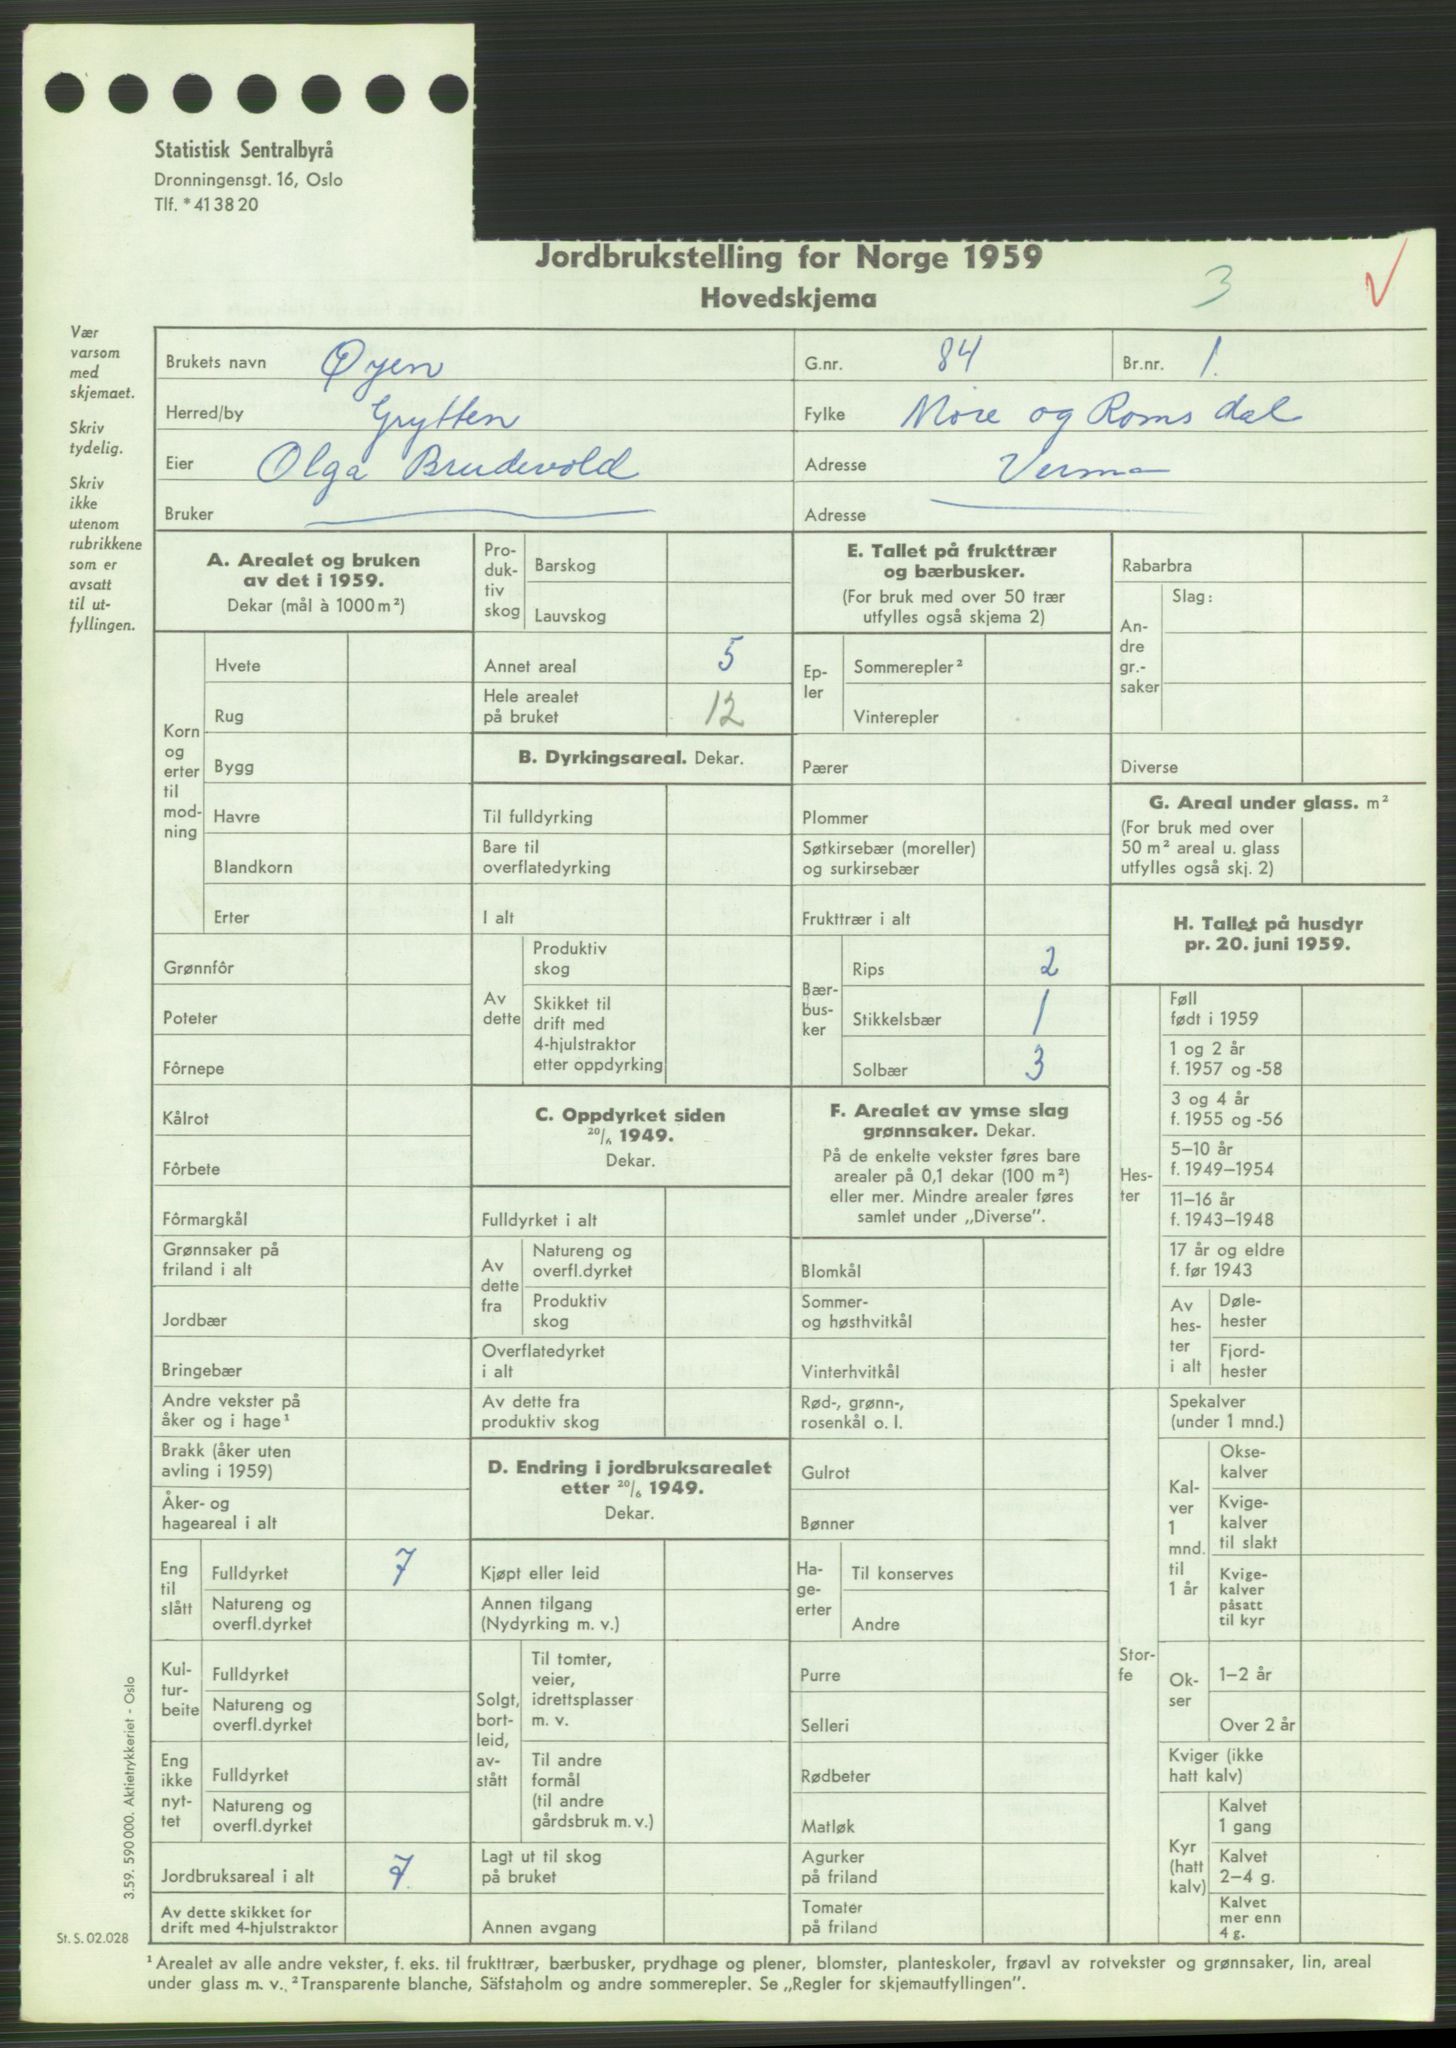 Statistisk Sentralbyrå
Dronningensgt. 16, Oslo
Tlf. * 41 38 20
Jordbrukstelling for Norge 1959
Hovedskjema
3
Vær
varsom
med
skjemaet.
Skriv
tydelig.
Skriv
ikke
utenom
rubrikkene
som er
avsatt
til ut-
fyllingen.
Brukets navn Øyen G.nr. 84 Br.nr. 1.
Herred/by Grytten Fylke Møre og Romsdal
Eier Olga Brudevold Adresse Verma
Bruker Adresse
A. Arealet og bruken
av det i 1959.
Dekar (mål à 1000 m²)
Korn
og
erter
til
mod-
ning
Hvete
Rug
Bygg
Havre
Blandkorn
Erter
Grønnfôr
Poteter
Fôrnepe
Kålrot
Fôrbete
Fôrmargkål
Grønnsaker på
friland i alt
Jordbær
Bringebær
Andre vekster på
åker og i hage¹
Brakk (åker uten
avling i 1959)
Åker- og
hageareal i alt
Eng
til
slått
Fulldyrket 7
Natureng og
overfl.dyrket
Kul-
tur-
beite
Fulldyrket
Natureng og
overfl.dyrket
Eng
ikke
nyt-
tet
Fulldyrket
Natureng og
overfl.dyrket
Jordbruksareal i alt 7
Av dette skikket for
drift med 4-hjulstraktor
Pro-
duk-
tiv
skog
Barskog
Lauvskog
Annet areal 5
Hele arealet
på bruket 12
B. Dyrkingsareal. Dekar.
Til fulldyrking
Bare til
overflatedyrking
I alt
Av
dette
Produktiv
skog
Skikket til
drift med
4-hjulstraktor
etter oppdyrking
C. Oppdyrket siden
20/6 1949.
Dekar.
Fulldyrket i alt
Av
dette
fra
Natureng og
overfl.dyrket
Produktiv
skog
Overflatedyrket
i alt
Av dette fra
produktiv skog
D. Endring i jordbruksarealet
etter 20/6 1949.
Dekar.
Kjøpt eller leid
Annen tilgang
(Nydyrking m. v.)
Solgt,
bort-
leid,
av-
stått
Til tomter,
veier,
idrettsplasser
m. v.
Til andre
formål
(til andre
gårdsbruk m. v.)
Lagt ut til skog
på bruket
Annen avgang
E. Tallet på frukttrær
og bærbusker.
(For bruk med over 50 trær
utfylles også skjema 2)
Ep-
ler
Sommerepler²
Vinterepler
Pærer
Plommer
Søtkirsebær (moreller)
og surkirsebær
Frukttrær i alt
Bær-
bus-
ker
Rips 2
Stikkelsbær 1
Solbær 3
F. Arealet av ymse slag
grønnsaker. Dekar.
På de enkelte vekster føres bare
arealer på 0,1 dekar (100 m²)
eller mer. Mindre arealer føres
samlet under „Diverse”.
Blomkål
Sommer-
og høsthvitkål
Vinterhvitkål
Rød-, grønn-,
rosenkål o. l.
Gulrot
Bønner
Ha-
ge-
erter
Til konserves
Andre
Purre
Selleri
Rødbeter
Matløk
Agurker
på friland
Tomater
på friland
Rabarbra
An-
dre
gr.-
saker
Slag:
Diverse
G. Areal under glass. m²
(For bruk med over
50 m² areal u. glass
utfylles også skj. 2)
H. Tallet på husdyr
pr. 20. juni 1959.
Hes-
ter
Føll
født i 1959
1 og 2 år
f. 1957 og -58
3 og 4 år
f. 1955 og -56
5–10 år
f. 1949–1954
11–16 år
f. 1943–1948
17 år og eldre
f. før 1943
Av
hes-
ter
i alt
Døle-
hester
Fjord-
hester
Stor-
fe
Spekalver
(under 1 mnd.)
Kal-
ver
1
mnd.
til
1 år
Okse-
kalver
Kvige-
kalver
til slakt
Kvige-
kalver
påsatt
til kyr
Ok-
ser
1–2 år
Over 2 år
Kviger (ikke
hatt kalv)
Kyr
(hatt
kalv)
Kalvet
1 gang
Kalvet
2–4 g.
Kalvet
mer enn
4 g.
3.59. 590 000. Aktietrykkeriet - Oslo
St. S. 02.028
¹ Arealet av alle andre vekster, f. eks. til frukttrær, bærbusker, prydhage og plener, blomster, planteskoler, frøavl av rotvekster og grønnsaker, lin, areal
under glass m. v. ² Transparente blanche, Säfstaholm og andre sommerepler. Se „Regler for skjemautfyllingen”.